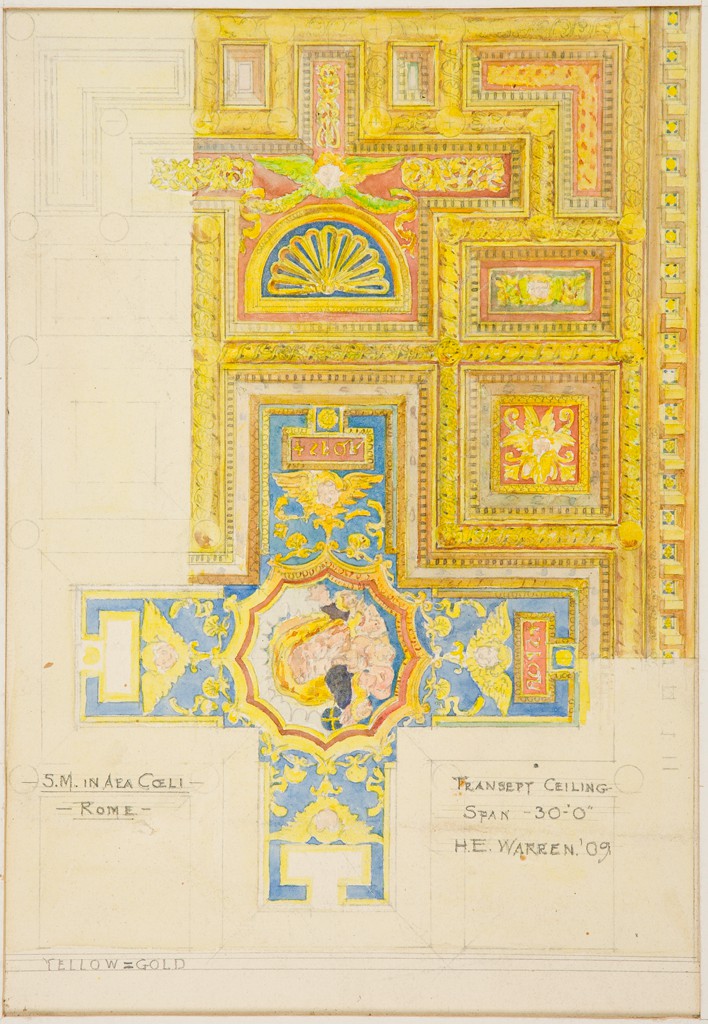 S.M. IN AEA CŒLI
ROME
TRANSEPT CEILING
SPAN - 30'-0"
H.E. WARREN. '09
YELLOW = GOLD